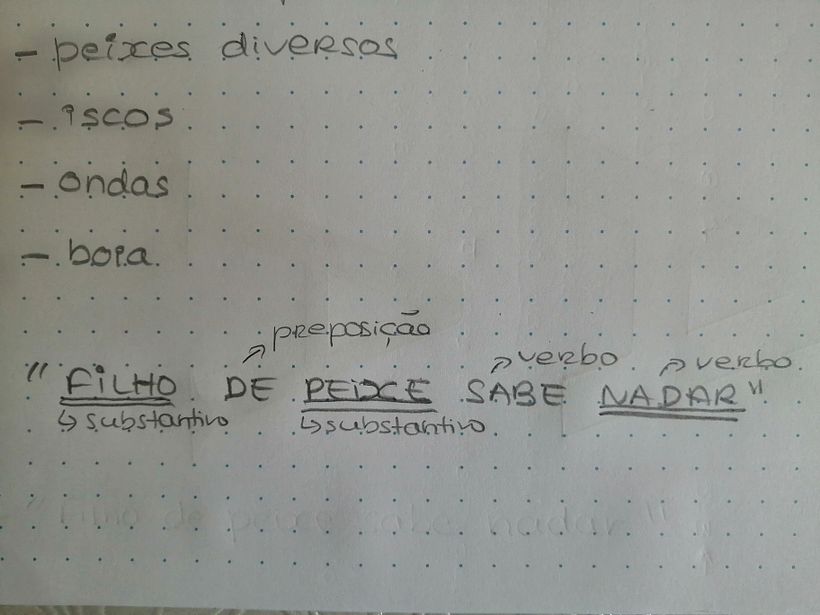 - peixes diversos
- iscos
- ondas
- boia
↗ preposição
↗ verbo ↗ verbo
" FILHO DE PEIXE SABE NADAR"
↳ substantivo ↳ substantivo
"Filho de peixe sabe nadar"